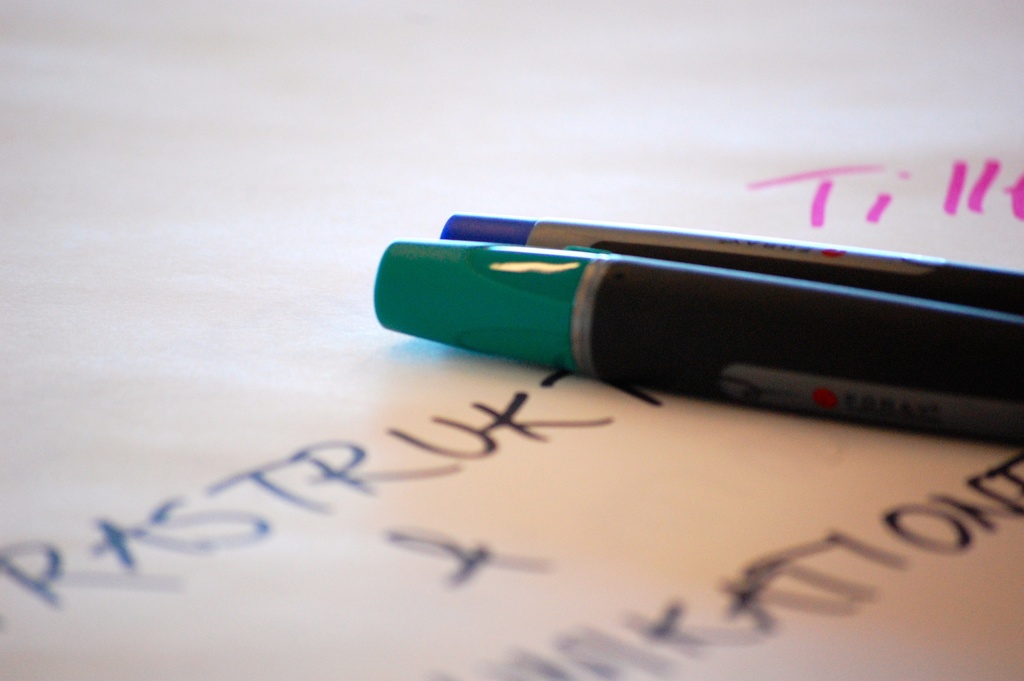 Till
RASTRUKT
&
NIKATIONE